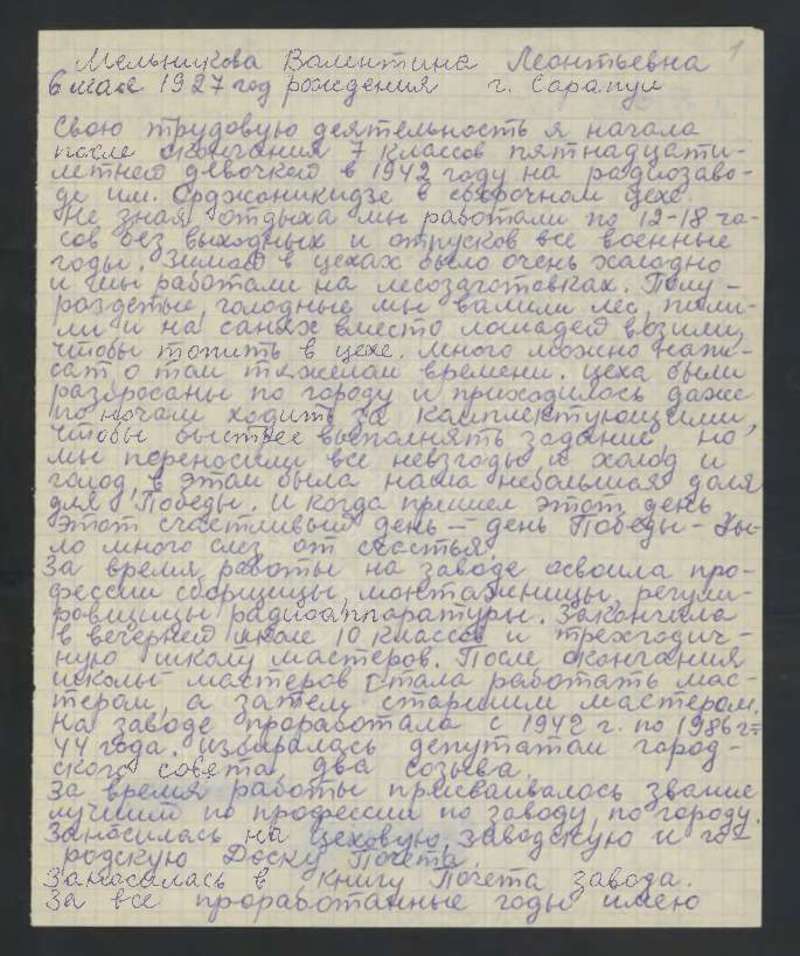 1
Мельникова Валентина Леонтьевна
6 мая 1927 год рождения г. Сарапул
Свою трудовую деятельность я начала
после окончания 7 классов пятнадцати-
летней девочкой в 1942 году на радиозаво-
де им. Орджоникидзе в сборочном цехе.
Не зная отдыха мы работали по 12-18 ча-
сов без выходных и отпусков все военные
годы. Зимой в цехах было очень холодно
и мы работали на лесозаготовках. Полу-
раздетые, голодные мы валили лес, пили-
ли и на санях вместо лошадей возили,
чтобы топить в цехе. Много можно напи-
сат о том тяжелом времени. Цеха были
разбросаны по городу и приходилось даже
по ночам ходить за комплектующими,
чтобы быстрее выполнять задание, но
мы переносили все невзгоды и холод и
голод, в этом была наша небольшая доля
для Победы. И когда пришел этот день
этот счастливый день – день Победы – бы-
ло много слез от счастья.
За время работы на заводе освоила про-
фессии сборщицы, монтажницы, регули-
ровщицы радиоаппаратуры. Закончила
в вечерней школе 10 классов и трехгодич-
ную школу мастеров. После окончания
школы мастеров стала работать мас-
тером, а затем старшим мастером.
На заводе проработала с 1942 г. по 1986 г =
44 года. Избиралась депутатом город-
ского совета два созыва.
За время работы присваивалось звание
лучший по профессии по заводу, по городу.
Заносилась на цеховую, заводскую и го-
родскую Доску Почета.
Заносилась в книгу Почета завода.
За все проработанные годы имею